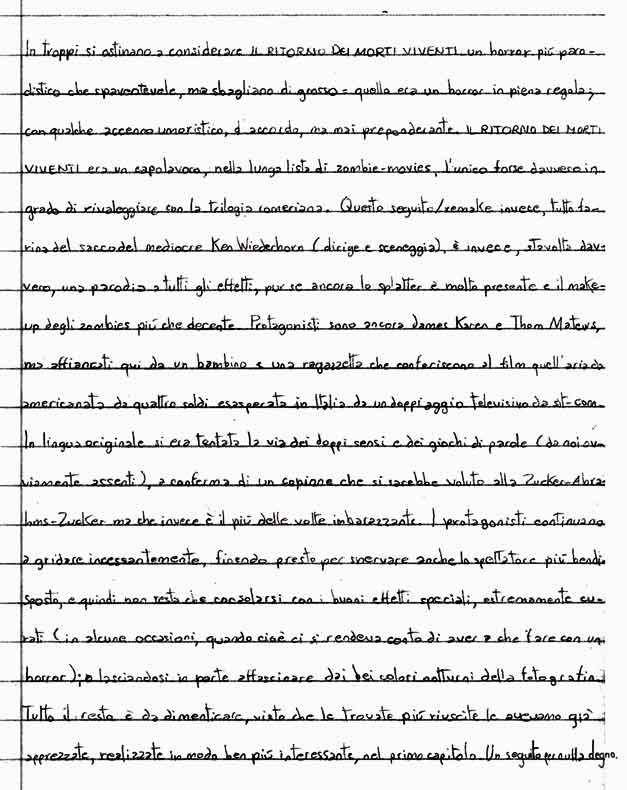 In troppi si ostinano a considerare IL RITORNO DEI MORTI VIVENTI un horror più paro-
distico che spaventevole, ma sbagliano di grosso: quello era un horror in piena regola;
con qualche accenno umoristico, d'accordo, ma mai preponderante. IL RITORNO DEI MORTI
VIVENTI era un capolavoro, nella lunga lista di zombie-movies, l'unico forse davvero in
grado di rivaleggiare con la trilogia romeriana. Questo seguito/remake invece, tutto fa-
rina del sacco del mediocre Ken Wiederhorn (dirige e sceneggia), è invece, stavolta dav-
vero, una parodia a tutti gli effetti, pur se ancora lo splatter è molto presente e il make-
up degli zombies più che decente. Protagonisti sono ancora James Karen e Thom Matews,
ma affiancati qui da un bambino e una ragazzetta che conferiscono al film quell'aria da
americanata da quattro soldi esasperata in Italia da un doppiaggio televisivo da sit-com.
In lingua originale si era tentata la via dei doppi sensi e dei giochi di parole (da noi ov-
viamente assenti), a conferma di un copione che si sarebbe voluto alla Zucker-Abra-
hms-Zucker ma che invece è il più delle volte imbarazzante. I protagonisti continuano
a gridare incessantemente, finendo presto per snervare anche lo spettatore più bendi-
sposto, e quindi non resta che consolarsi con i buoni effetti speciali, estremamente cu-
rati (in alcune occasioni, quando cioè ci si rendeva conto di aver a che fare con un
horror); o lasciandosi in parte affascinare dai bei colori notturni della fotografia.
Tutto il resto è da dimenticare, visto che le trovate più riuscite le avevamo già
apprezzate, realizzate in modo ben più interessante, nel primo capitolo. Un seguito per nulla degno.